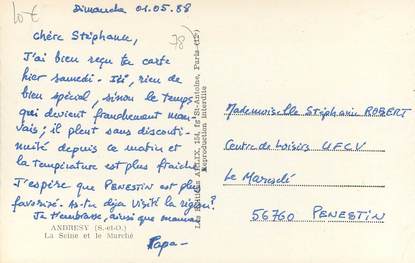 10€
Dimanche 01.05.88
78)
Chère Stéphanie,
J'ai bien reçu ta carte
hier samedi. Ici, rien de
bien spécial, sinon le temps
qui devient franchement mau-
vais; il pleut sans disconti-
nuité depuis ce matin et
la température est plus fraîche.
J'espère que PENESTIN est plus
favorisé. As-tu déjà visité la région?
Je t'embrasse, ainsi que maman.
Papa-
ANDRESY (S.-et-O.)
La Seine et le Marché
Reproduction interdite
Mademoiselle Stéphanie ROBERT
Centre de Loisirs UFCV
Le
56760 PENESTIN